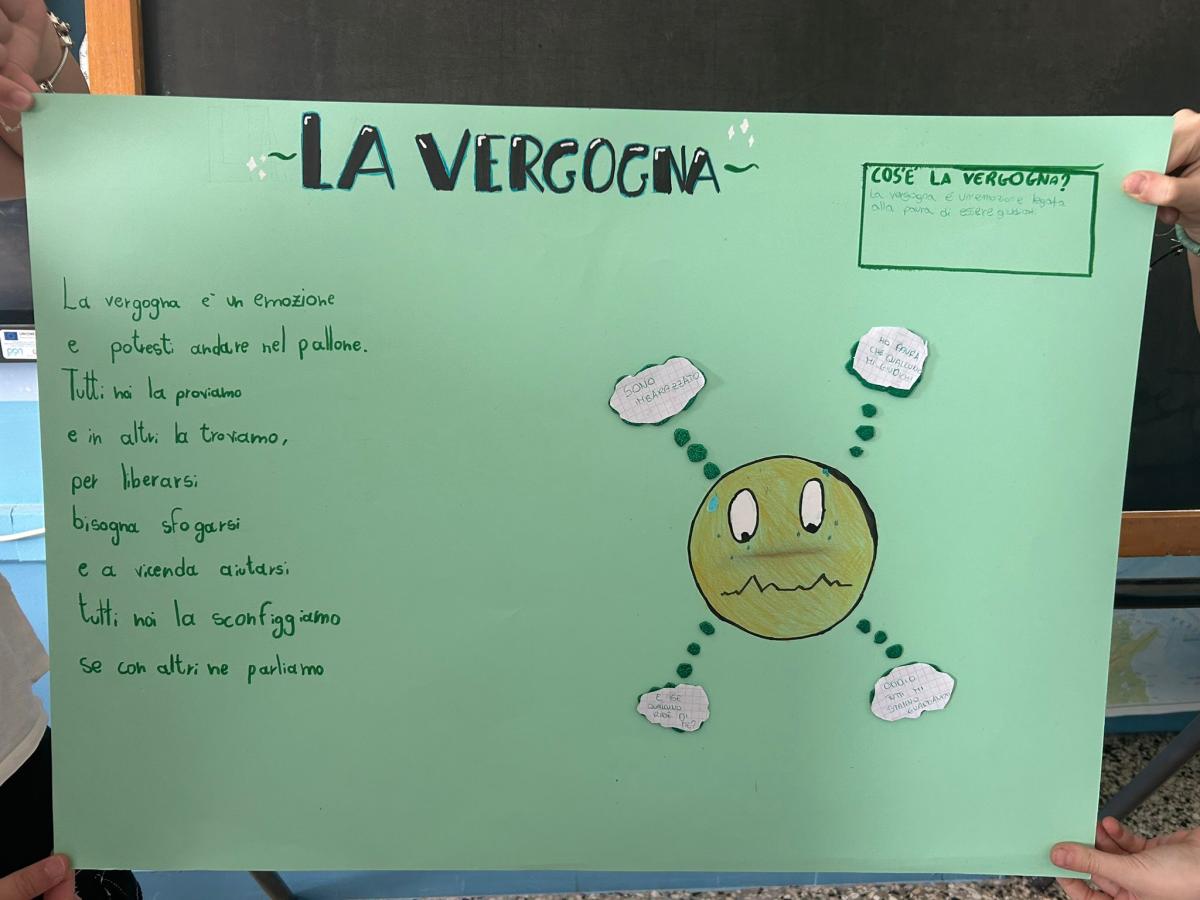 ~LA VERGOGNA~
COS'E' LA VERGOGNA?
La vergogna é un'emozione legata
alla paura di essere giudicati.
La vergogna e' un emozione
e potresti andare nel pallone.
Tutti noi la proviamo
e in altri la troviamo,
per liberarsi
bisogna sfogarsi
e a vicenda aiutarsi
tutti noi la sconfiggiamo
se con altri ne parliamo
SONO
IMBARAZZATO
HO PAURA
CHE QUALCUNO
MI GIUDICHI
E SE
QUALCUNO
RIDE DI
ME?
ODDIO
TUTTI MI
STANNO
GUARDANDO